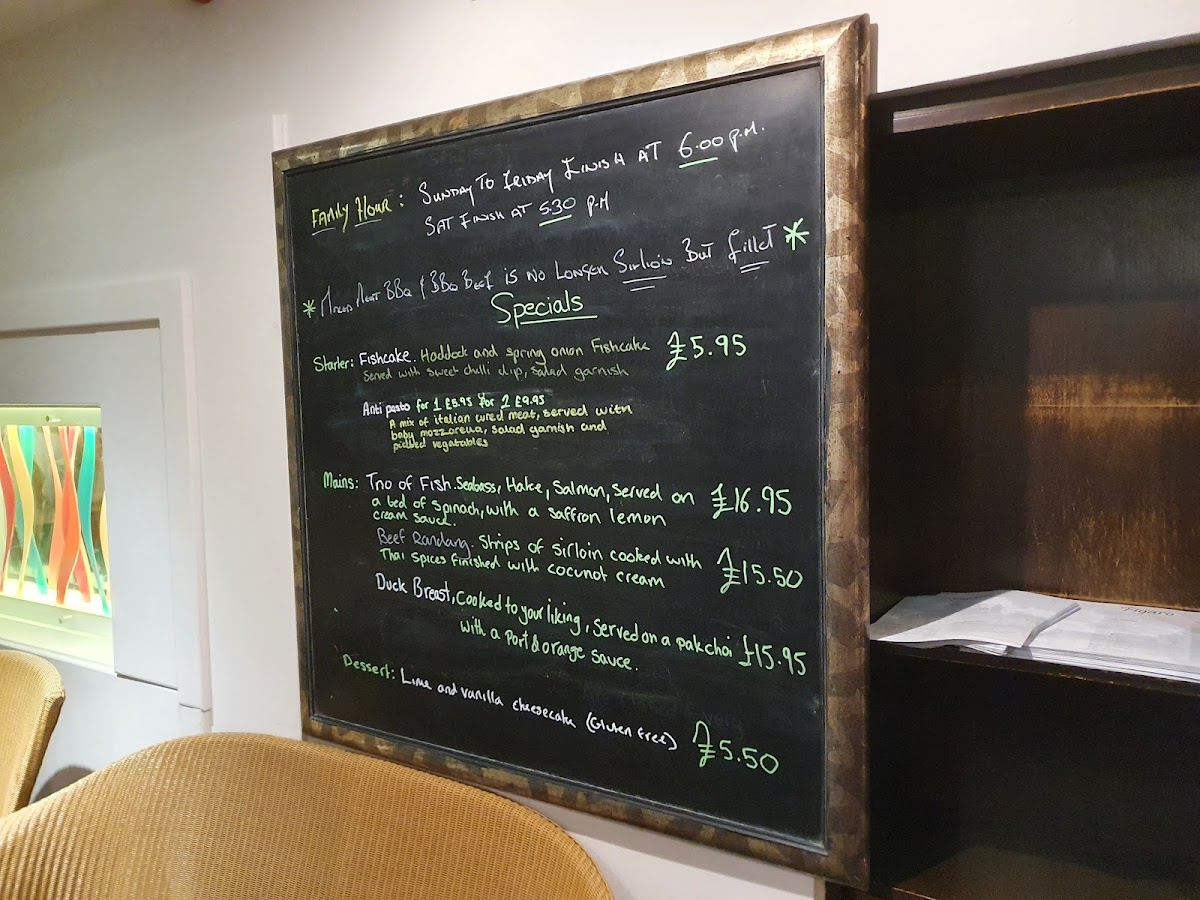 Family Hour: Sunday To Friday Finish at 6.00 p.m.
Sat Finish at 5.30 p.m
* Mixed Meat BBQ & BBQ Beef is no longer Sirlion But Fillet *
Specials
Starter: Fishcake. Haddock and spring onion Fishcake £5.95
Served with sweet chilli dip, salad garnish
Anti pasto for 1 £5.95 for 2 £9.95
A mix of italian cured meat, served with
baby mozzarella, salad garnish and
pickled vegatables
Mains: Trio of Fish. Seabass, Hake, Salmon, served on £16.95
a bed of spinach, with a saffron lemon
cream sauce.
Beef Randang. Strips of sirloin cooked with £15.50
Thai spices finished with cocunot cream
Duck Breast, cooked to your liking, served on a pakchoi £15.95
with a Port & orange sauce.
Dessert: Lime and vanilla cheesecake (Gluten free) £5.50
Figaro